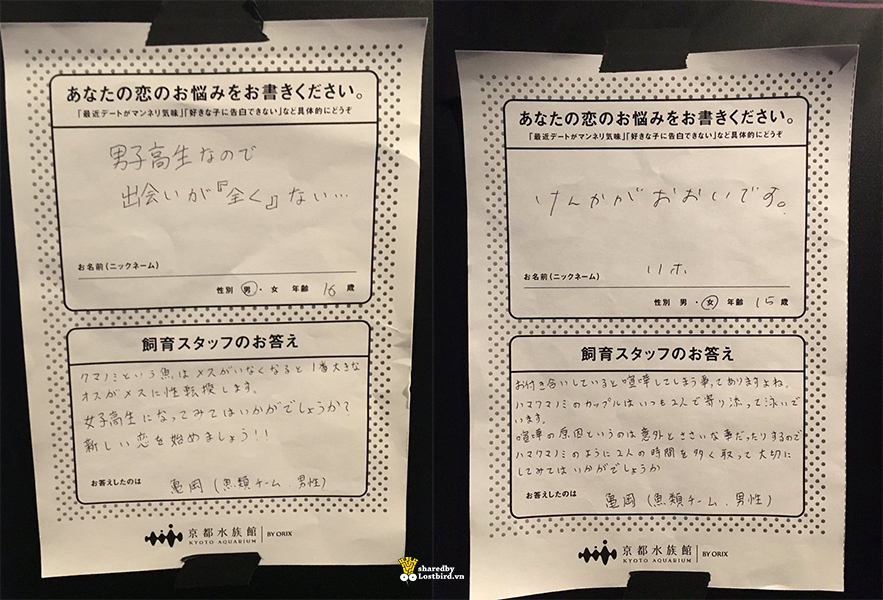 あなたの恋のお悩みをお書きください。
「最近デートがマンネリ気味」「好きな子に告白できない」など具体的にどうぞ
男子高生なので
出会いが『全く』ない…
お名前(ニックネーム)
性別 男・女 年齢 16 歳
飼育スタッフのお答え
クマノミという魚はメスがいなくなると1番大きな
オスがメスに性転換します。
女子高生になってみてはいかがでしょうか?
新しい恋を始めましょう!!
お答えしたのは 亀岡(魚類チーム、男性)
京都水族館 BY ORIX
KYOTO AQUARIUM
あなたの恋のお悩みをお書きください。
「最近デートがマンネリ気味」「好きな子に告白できない」など具体的にどうぞ
けんかがおおいです。
お名前(ニックネーム) リホ
性別 男・女 年齢 15 歳
飼育スタッフのお答え
お付き合いしていると喧嘩してしまう事ってありますよね。
ハマクマノミのカップルはいつも2人で寄り添って泳いで
います。
喧嘩の原因というのは意外とささいな事だったりするので
ハマクマノミのように2人の時間を多く取って大切に
してみてはいかがでしょうか
お答えしたのは 亀岡(魚類チーム、男性)
京都水族館 BY ORIX
KYOTO AQUARIUM
sharedby
Lostbird.vn